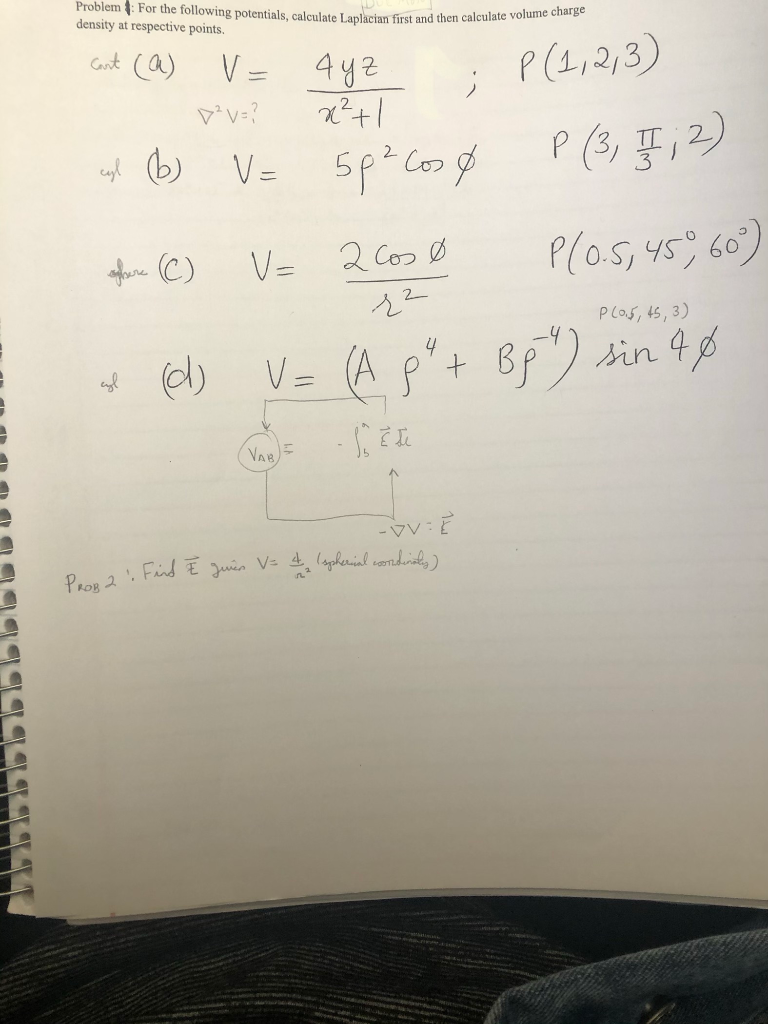 Problem 1: For the following potentials, calculate Laplacian first and then calculate volume charge
density at respective points.
Cart (a) V = 4yz / x²+1 ; P(1,2,3)
∇²V=?
cyl (b) V = 5ρ² cos φ P(3, π/3, 2)
sphere (C) V = 2 cos φ / r² P(0.5, 45°, 60°)
P(0.5, 45, 3)
cyl (d) V = (A ρ⁴ + Bρ⁻⁴) sin 4φ
V_AB = - ∫_b^a E⃗
-∇V = E⃗
PROB 2: Find E⃗ given V= 4/r² (spherical coordinates)